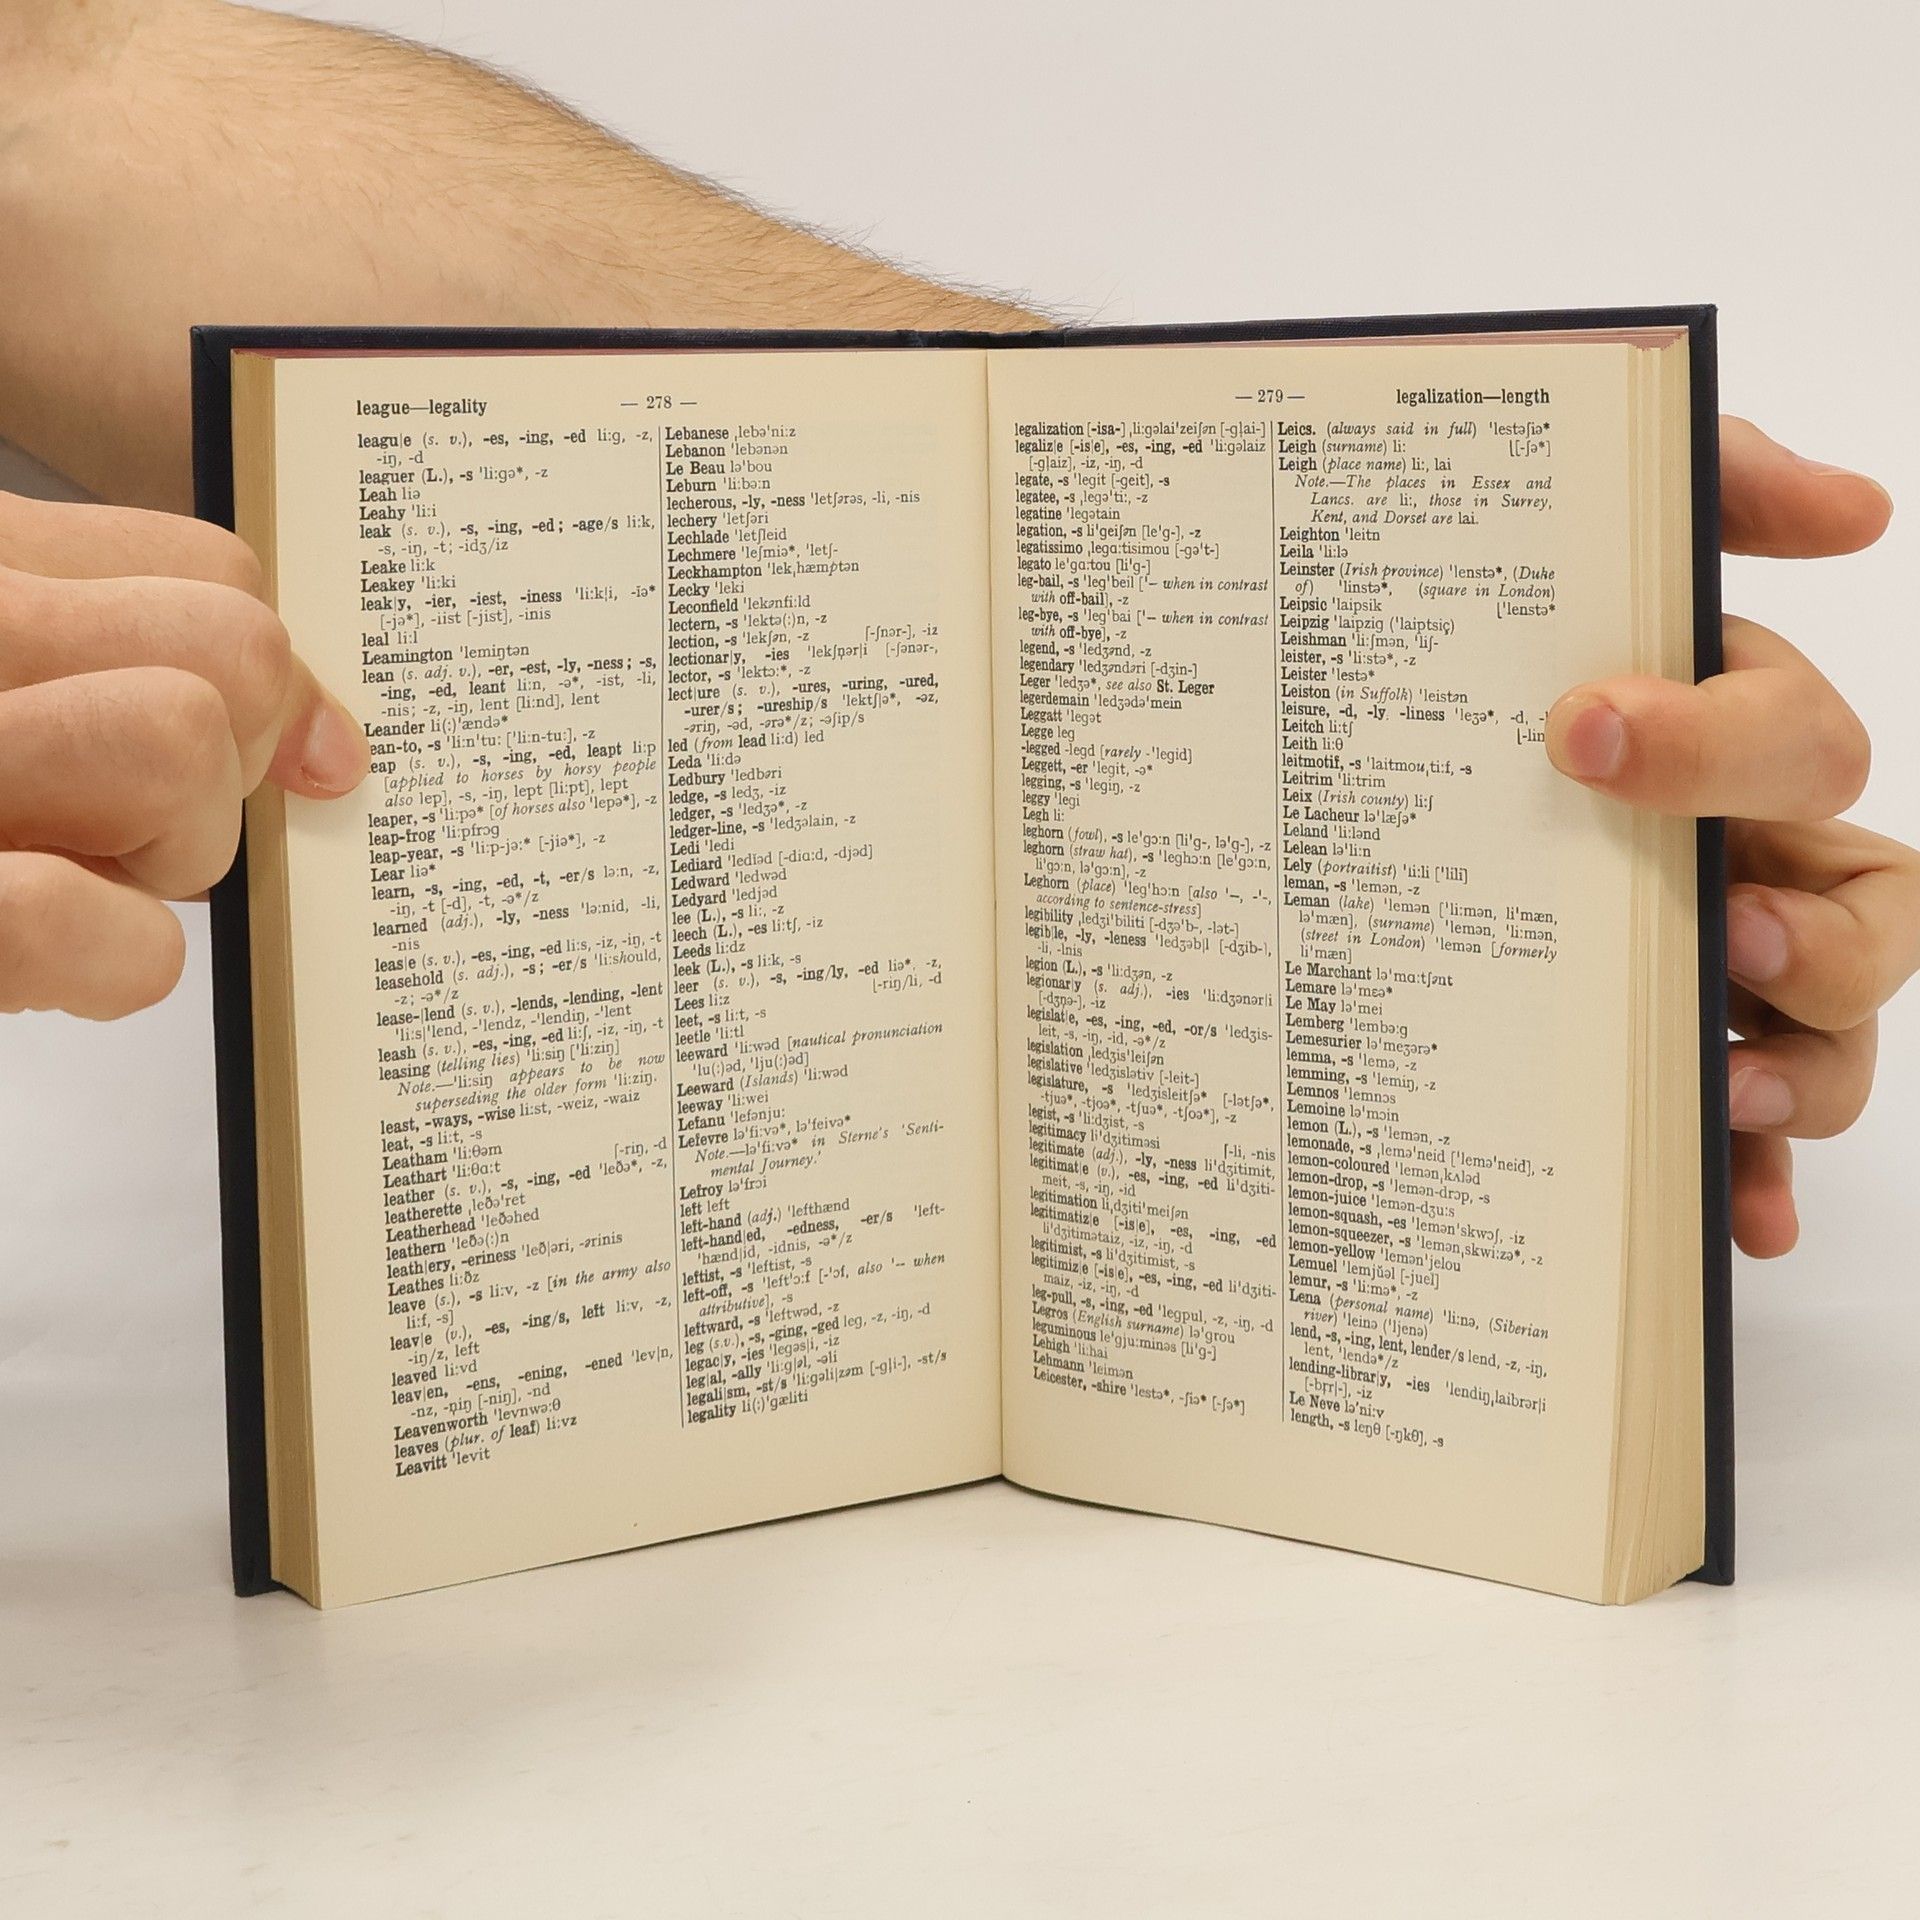 league—legality
— 278 —
leagu|e (s. v.), -es, -ing, -ed li:g, -z,
-iŋ, -d
leaguer (L.), -s 'li:gə*, -z
Leah liə
Leahy 'li:i
leak (s. v.), -s, -ing, -ed; -age/s li:k,
-s, -iŋ, -t; -idʒ/iz
Leake li:k
Leakey 'li:ki
leak|y, -ier, -iest, -iness 'li:k|i, -ĭə*
[-jə*], -iist [-jist], -inis
leal li:l
Leamington 'lemiŋtən
lean (s. adj. v.), -er, -est, -ly, -ness; -s,
-ing, -ed, leant li:n, -ə*, -ist, -li,
-nis; -z, -iŋ, lent [li:nd], lent
Leander li(:)'ændə*
ean-to, -s 'li:n'tu: ['li:n-tu:], -z
eap (s. v.), -s, -ing, -ed, leapt li:p
[applied to horses by horsy people
also lep], -s, -iŋ, lept [li:pt], lept
leaper, -s 'li:pə* [of horses also 'lepə*], -z
leap-frog 'li:pfrɔg
leap-year, -s 'li:p-jə:* [-jiə*], -z
Lear liə*
learn, -s, -ing, -ed, -t, -er/s lə:n, -z,
-iŋ, -t [-d], -t, -ə*/z
learned (adj.), -ly, -ness 'lə:nid, -li,
-nis
leas|e (s. v.), -es, -ing, -ed li:s, -iz, -iŋ, -t
leasehold (s. adj.), -s; -er/s 'li:should,
-z; -ə*/z
lease-|lend (s. v.), -lends, -lending, -lent
'li:s|'lend, -'lendz, -'lendiŋ, -'lent
leash (s. v.), -es, -ing, -ed li:ʃ, -iz, -iŋ, -t
leasing (telling lies) 'li:siŋ ['li:ziŋ]
Note.—'li:siŋ appears to be now
superseding the older form 'li:ziŋ.
least, -ways, -wise li:st, -weiz, -waiz
leat, -s li:t, -s
Leatham 'li:θəm
Leathart 'li:θɑ:t [-riŋ, -d
leather (s. v.), -s, -ing, -ed 'leðə*, -z,
leatherette ˌleðə'ret
Leatherhead 'leðəhed
leathern 'leðə(:)n
leath|ery, -eriness 'leð|əri, -ərinis
Leathes li:ðz
leave (s.), -s li:v, -z [in the army also
li:f, -s]
leav|e (v.), -es, -ing/s, left li:v, -z,
-iŋ/z, left
leaved li:vd
leav|en, -ens, -ening, -ened 'lev|n,
-nz, -ṇiŋ [-niŋ], -nd
Leavenworth 'levnwə:θ
leaves (plur. of leaf) li:vz
Leavitt 'levit
Lebanese ˌlebə'ni:z
Lebanon 'lebənən
Le Beau lə'bou
Leburn 'li:bə:n
lecherous, -ly, -ness 'letʃərəs, -li, -nis
lechery 'letʃəri
Lechlade 'letʃleid
Lechmere 'leʃmiə*, 'letʃ-
Leckhampton 'lekˌhæmptən
Lecky 'leki
Leconfield 'lekənfi:ld
lectern, -s 'lektə(:)n, -z
lection, -s 'lekʃən, -z [-ʃnər-], -iz
lectionar|y, -ies 'lekʃṇər|i [-ʃənər-,
lector, -s 'lektɔ:*, -z
lect|ure (s. v.), -ures, -uring, -ured,
-urer/s; -ureship/s 'lektʃ|ə*, -əz,
-əriŋ, -əd, -ərə*/z; -əʃip/s
led (from lead li:d) led
Leda 'li:də
Ledbury 'ledbəri
ledge, -s ledʒ, -iz
ledger, -s 'ledʒə*, -z
ledger-line, -s 'ledʒəlain, -z
Ledi 'ledi
Lediard 'lediəd [-diɑ:d, -djəd]
Ledward 'ledwəd
Ledyard 'ledjəd
lee (L.), -s li:, -z
leech (L.), -es li:tʃ, -iz
Leeds li:dz
leek (L.), -s li:k, -s
leer (s. v.), -s, -ing/ly, -ed liə*, -z,
Lees li:z [-riŋ/li, -d
leet, -s li:t, -s
leetle 'li:tl
leeward 'li:wəd [nautical pronunciation
'lu(:)əd, 'lju(:)əd]
Leeward (Islands) 'li:wəd
leeway 'li:wei
Lefanu 'lefənju:
Lefevre lə'fi:və*, lə'feivə*
Note.—lə'fi:və* in Sterne's 'Senti-
mental Journey.'
Lefroy lə'frɔi
left left
left-hand (adj.) 'lefthænd
left-hand|ed, -edness, -er/s 'left-
'hænd|id, -idnis, -ə*/z
leftist, -s 'leftist, -s
left-off, -s 'left'ɔ:f [-'ɔf, also '– when
attributive], -s
leftward, -s 'leftwəd, -z
leg (s.v.), -s, -ging, -ged leg, -z, -iŋ, -d
legac|y, -ies 'legəs|i, -iz
leg|al, -ally 'li:g|əl, -əli
legali|sm, -st/s 'li:gəli|zəm [-gl̩i-], -st/s
legality li(:)'gæliti
— 279 —
legalization—length
legalization [-isa-] ˌli:gəlai'zeiʃən [-gl̩ai-]
legaliz|e [-is|e], -es, -ing, -ed 'li:gəlaiz
[-gl̩aiz], -iz, -iŋ, -d
legate, -s 'legit [-geit], -s
legatee, -s ˌlegə'ti:, -z
legatine 'legətain
legation, -s li'geiʃən [le'g-], -z
legatissimo ˌlegɑ:tisimou [-gə't-]
legato le'gɑ:tou [li'g-]
leg-bail, -s 'leg'beil ['– when in contrast
with off-bail], -z
leg-bye, -s 'leg'bai ['– when in contrast
with off-bye], -z
legend, -s 'ledʒənd, -z
legendary 'ledʒəndəri [-dʒin-]
Leger 'ledʒə*, see also St. Leger
legerdemain 'ledʒədə'mein
Leggatt 'legət
Legge leg
-legged -legd [rarely -'legid]
Leggett, -er 'legit, -ə*
legging, -s 'legiŋ, -z
leggy 'legi
Legh li:
leghorn (fowl), -s le'gɔ:n [li'g-, lə'g-], -z
leghorn (straw hat), -s 'leghɔ:n [le'gɔ:n,
li'gɔ:n, lə'gɔ:n], -z
Leghorn (place) 'leg'hɔ:n [also '–, -'-,
according to sentence-stress]
legibility ˌledʒi'biliti [-dʒə'b-, -lət-]
legib|le, -ly, -leness 'ledʒəb|l [-dʒib-],
-li, -lnis
legion (L.), -s 'li:dʒən, -z
legionar|y (s. adj.), -ies 'li:dʒənər|i
[-dʒnə-], -iz
legislat|e, -es, -ing, -ed, -or/s 'ledʒis-
leit, -s, -iŋ, -id, -ə*/z
legislation ˌledʒis'leiʃən
legislative 'ledʒislətiv [-leit-]
legislature, -s 'ledʒisleitʃə* [-lətʃə*,
-tjuə*, -tjoə*, -tʃuə*, -tʃoə*], -z
legist, -s 'li:dʒist, -s
legitimacy li'dʒitiməsi [-li, -nis
legitimate (adj.), -ly, -ness li'dʒitimit,
legitimat|e (v.), -es, -ing, -ed li'dʒiti-
meit, -s, -iŋ, -id
legitimation liˌdʒiti'meiʃən
legitimatiz|e [-is|e], -es, -ing, -ed
li'dʒitimətaiz, -iz, -iŋ, -d
legitimist, -s li'dʒitimist, -s
legitimiz|e [-is|e], -es, -ing, -ed li'dʒiti-
maiz, -iz, -iŋ, -d
leg-pull, -s, -ing, -ed 'legpul, -z, -iŋ, -d
Legros (English surname) lə'grou
leguminous le'gju:minəs [li'g-]
Lehigh 'li:hai
Lehmann 'leimən
Leicester, -shire 'lestə*, -ʃiə* [-ʃə*]
Leics. (always said in full) 'lestəʃiə*
Leigh (surname) li: [[-ʃə*]
Leigh (place name) li:, lai
Note.—The places in Essex and
Lancs. are li:, those in Surrey,
Kent, and Dorset are lai.
Leighton 'leitn
Leila 'li:lə
Leinster (Irish province) 'lenstə*, (Duke
of) 'linstə*, (square in London)
Leipsic 'laipsik ['lenstə*
Leipzig 'laipzig ('laiptsiç)
Leishman 'li:ʃmən, 'liʃ-
leister, -s 'li:stə*, -z
Leister 'lestə*
Leiston (in Suffolk) 'leistən
leisure, -d, -ly, -liness 'leʒə*, -d, -l
Leitch li:tʃ [-lin
Leith li:θ
leitmotif, -s 'laitmouˌti:f, -s
Leitrim 'li:trim
Leix (Irish county) li:ʃ
Le Lacheur lə'læʃə*
Leland 'li:lənd
Lelean lə'li:n
Lely (portraitist) 'li:li ['lili]
leman, -s 'lemən, -z
Leman (lake) 'lemən ['li:mən, li'mæn,
lə'mæn], (surname) 'lemən, 'li:mən,
(street in London) 'lemən [formerly
li'mæn]
Le Marchant lə'mɑ:tʃənt
Lemare lə'mɛə*
Le May lə'mei
Lemberg 'lembə:g
Lemesurier lə'meʒərə*
lemma, -s 'lemə, -z
lemming, -s 'lemiŋ, -z
Lemnos 'lemnɔs
Lemoine lə'mɔin
lemon (L.), -s 'lemən, -z
lemonade, -s ˌlemə'neid ['lemə'neid], -z
lemon-coloured 'lemənˌkʌləd
lemon-drop, -s 'lemən-drɔp, -s
lemon-juice 'lemən-dʒu:s
lemon-squash, -es 'lemən'skwɔʃ, -iz
lemon-squeezer, -s 'lemənˌskwi:zə*, -z
lemon-yellow 'lemən'jelou
Lemuel 'lemjŭəl [-juel]
lemur, -s 'li:mə*, -z
Lena (personal name) 'li:nə, (Siberian
river) 'leinə ('ljena)
lend, -s, -ing, lent, lender/s lend, -z, -iŋ,
lent, 'lendə*/z
lending-librar|y, -ies 'lendiŋˌlaibrər|i
[-brr̩|-], -iz
Le Neve lə'ni:v
length, -s leŋθ [-ŋkθ], -s